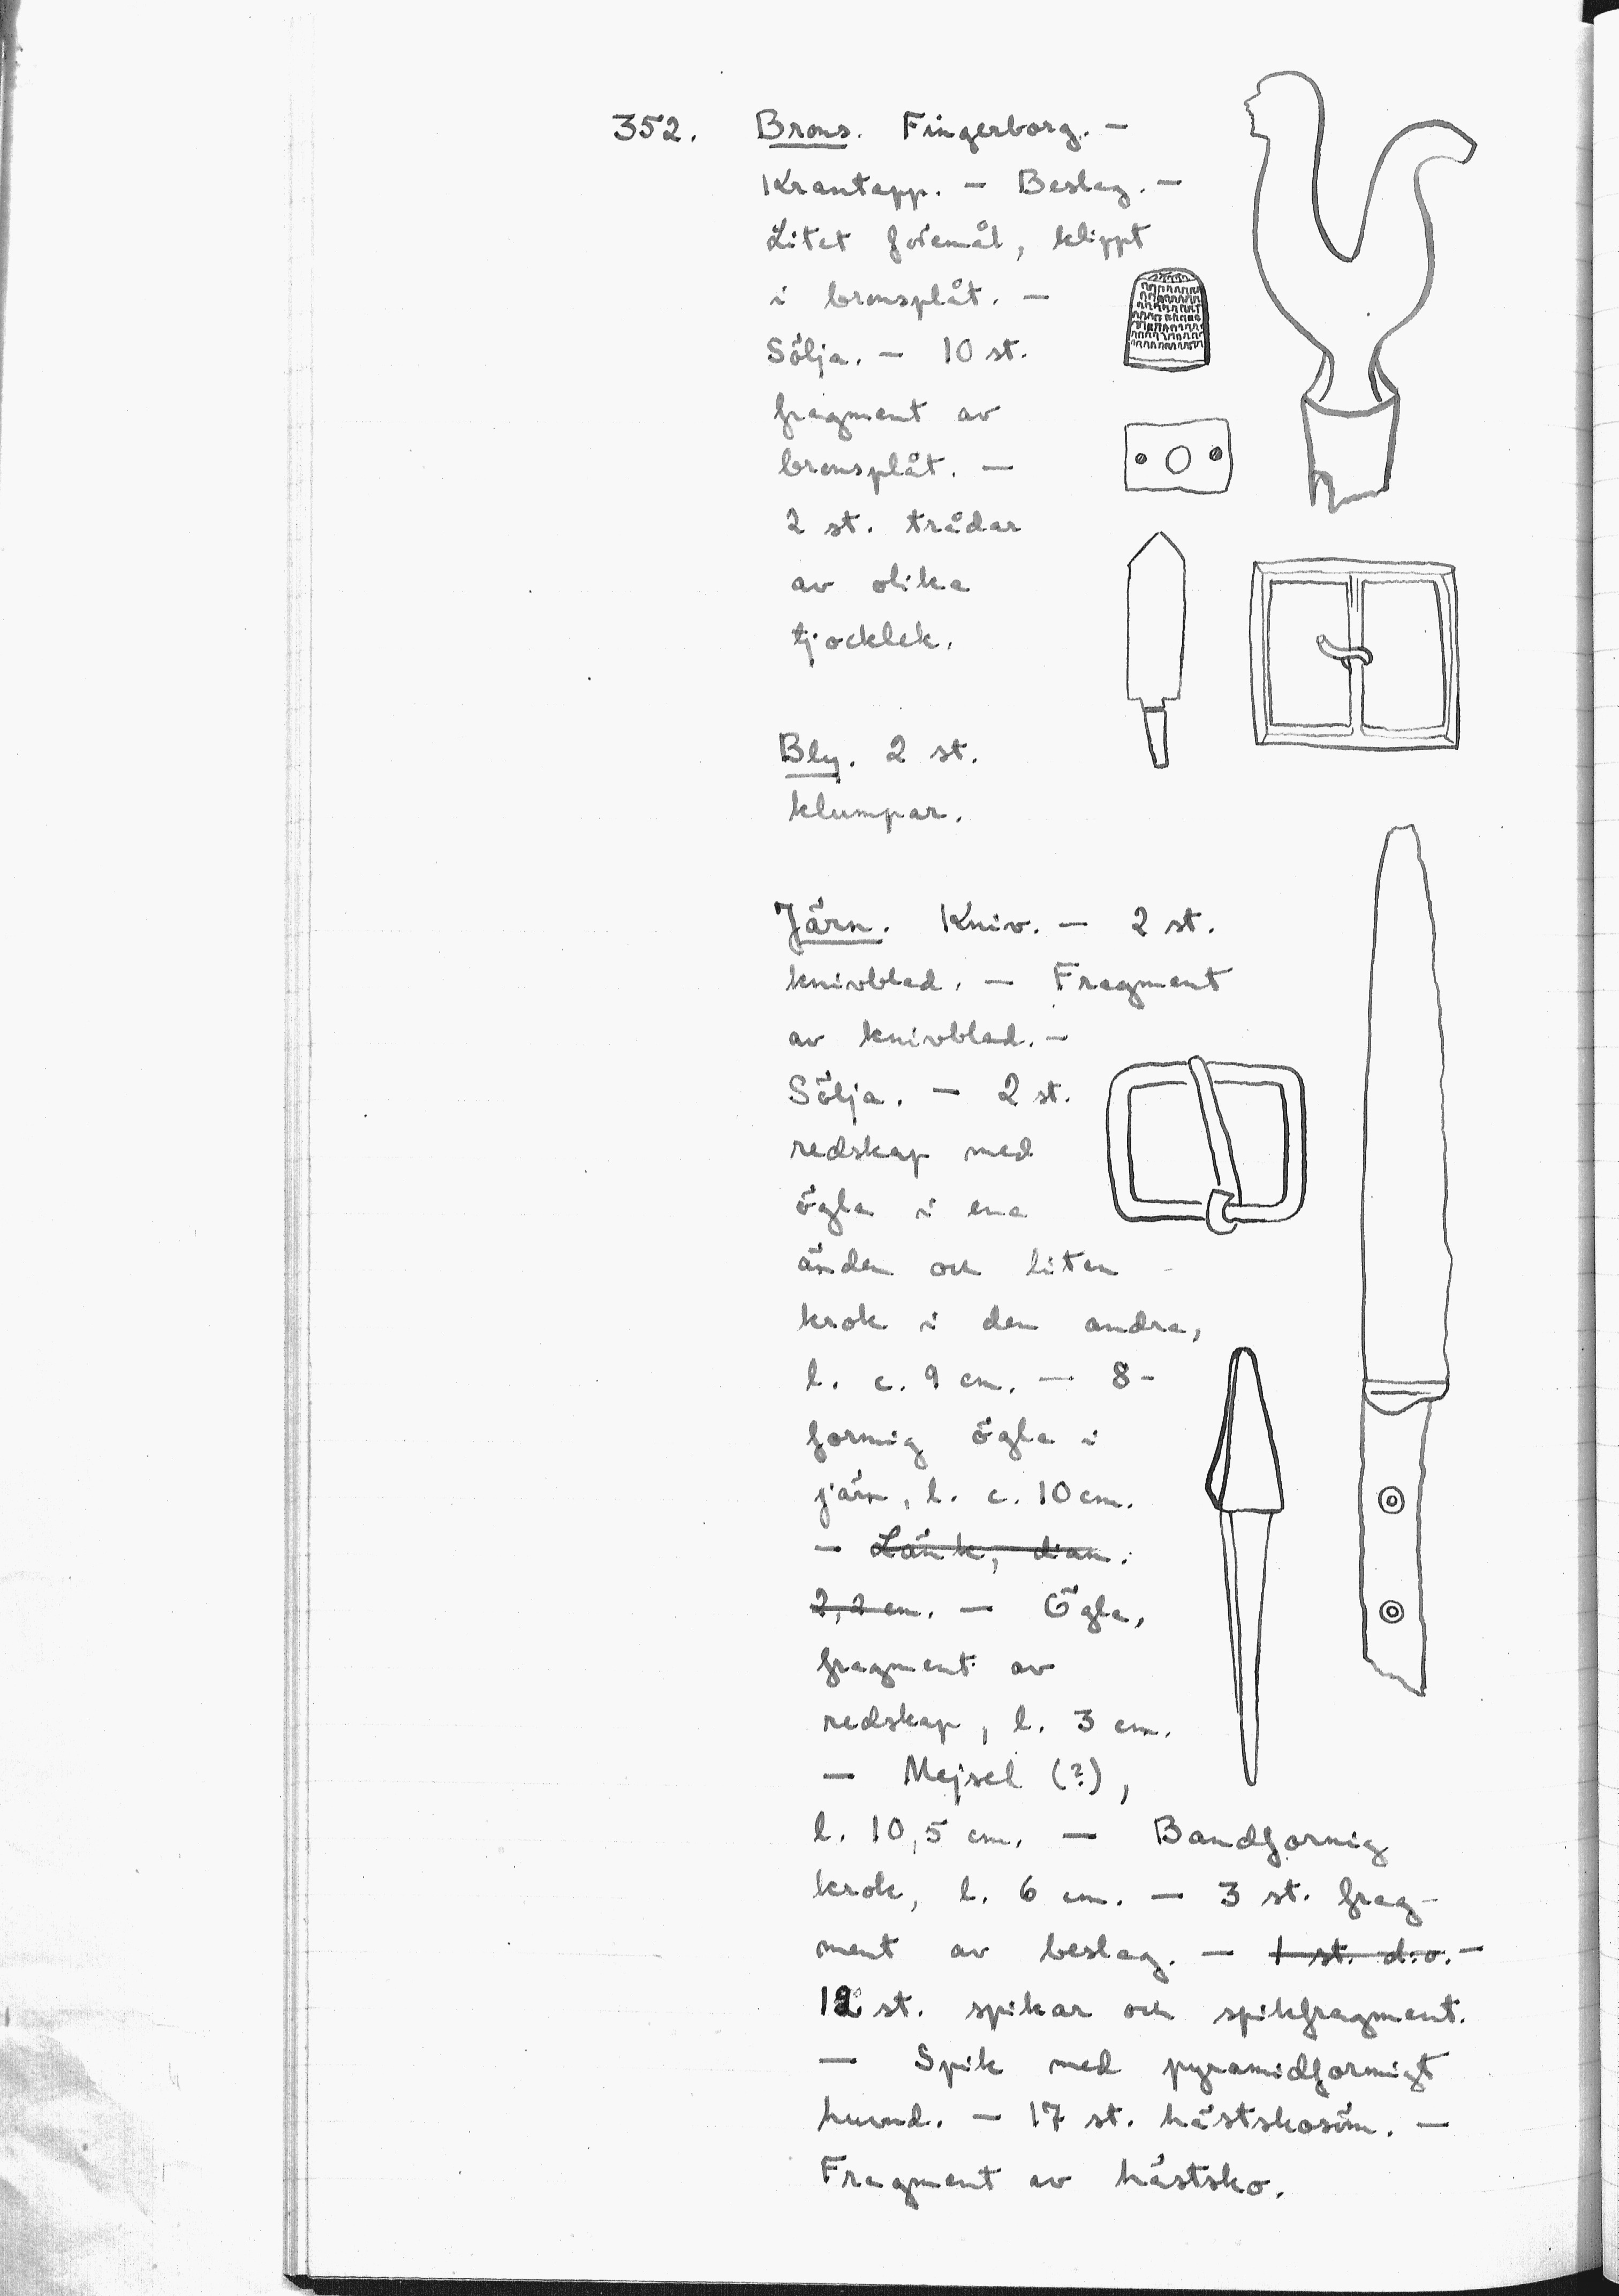 352. Brons. Fingerborg. —
Krantapp. — Beslag. —
Litet föremål, klippt
i bronsplåt. —
Sölja. — 10 st.
fragment av
bronsplåt. —
2 st. trådar
av olika
tjocklek.
Bly. 2 st.
klumpar.
Järn. Kniv. — 2 st.
knivblad. — Fragment
av knivblad. —
Sölja. — 2 st.
redskap med
ögla i ena
änden och liten
krok i den andra,
l. c. 9 cm. — 8-
formig ögla i
järn, l. c. 10 cm.
— Länk, diam.
2,2 cm. — Ögla,
fragment av
redskap, l. 3 cm.
— Mejsel (?),
l. 10,5 cm. — Bandformig
krok, l. 6 cm. — 3 st. frag-
ment av beslag. — 1 st. d:o. —
12 st. spikar och spikfragment.
— Spik med pyramidformigt
huvud. — 17 st. hästskosöm. —
Fragment av hästsko.